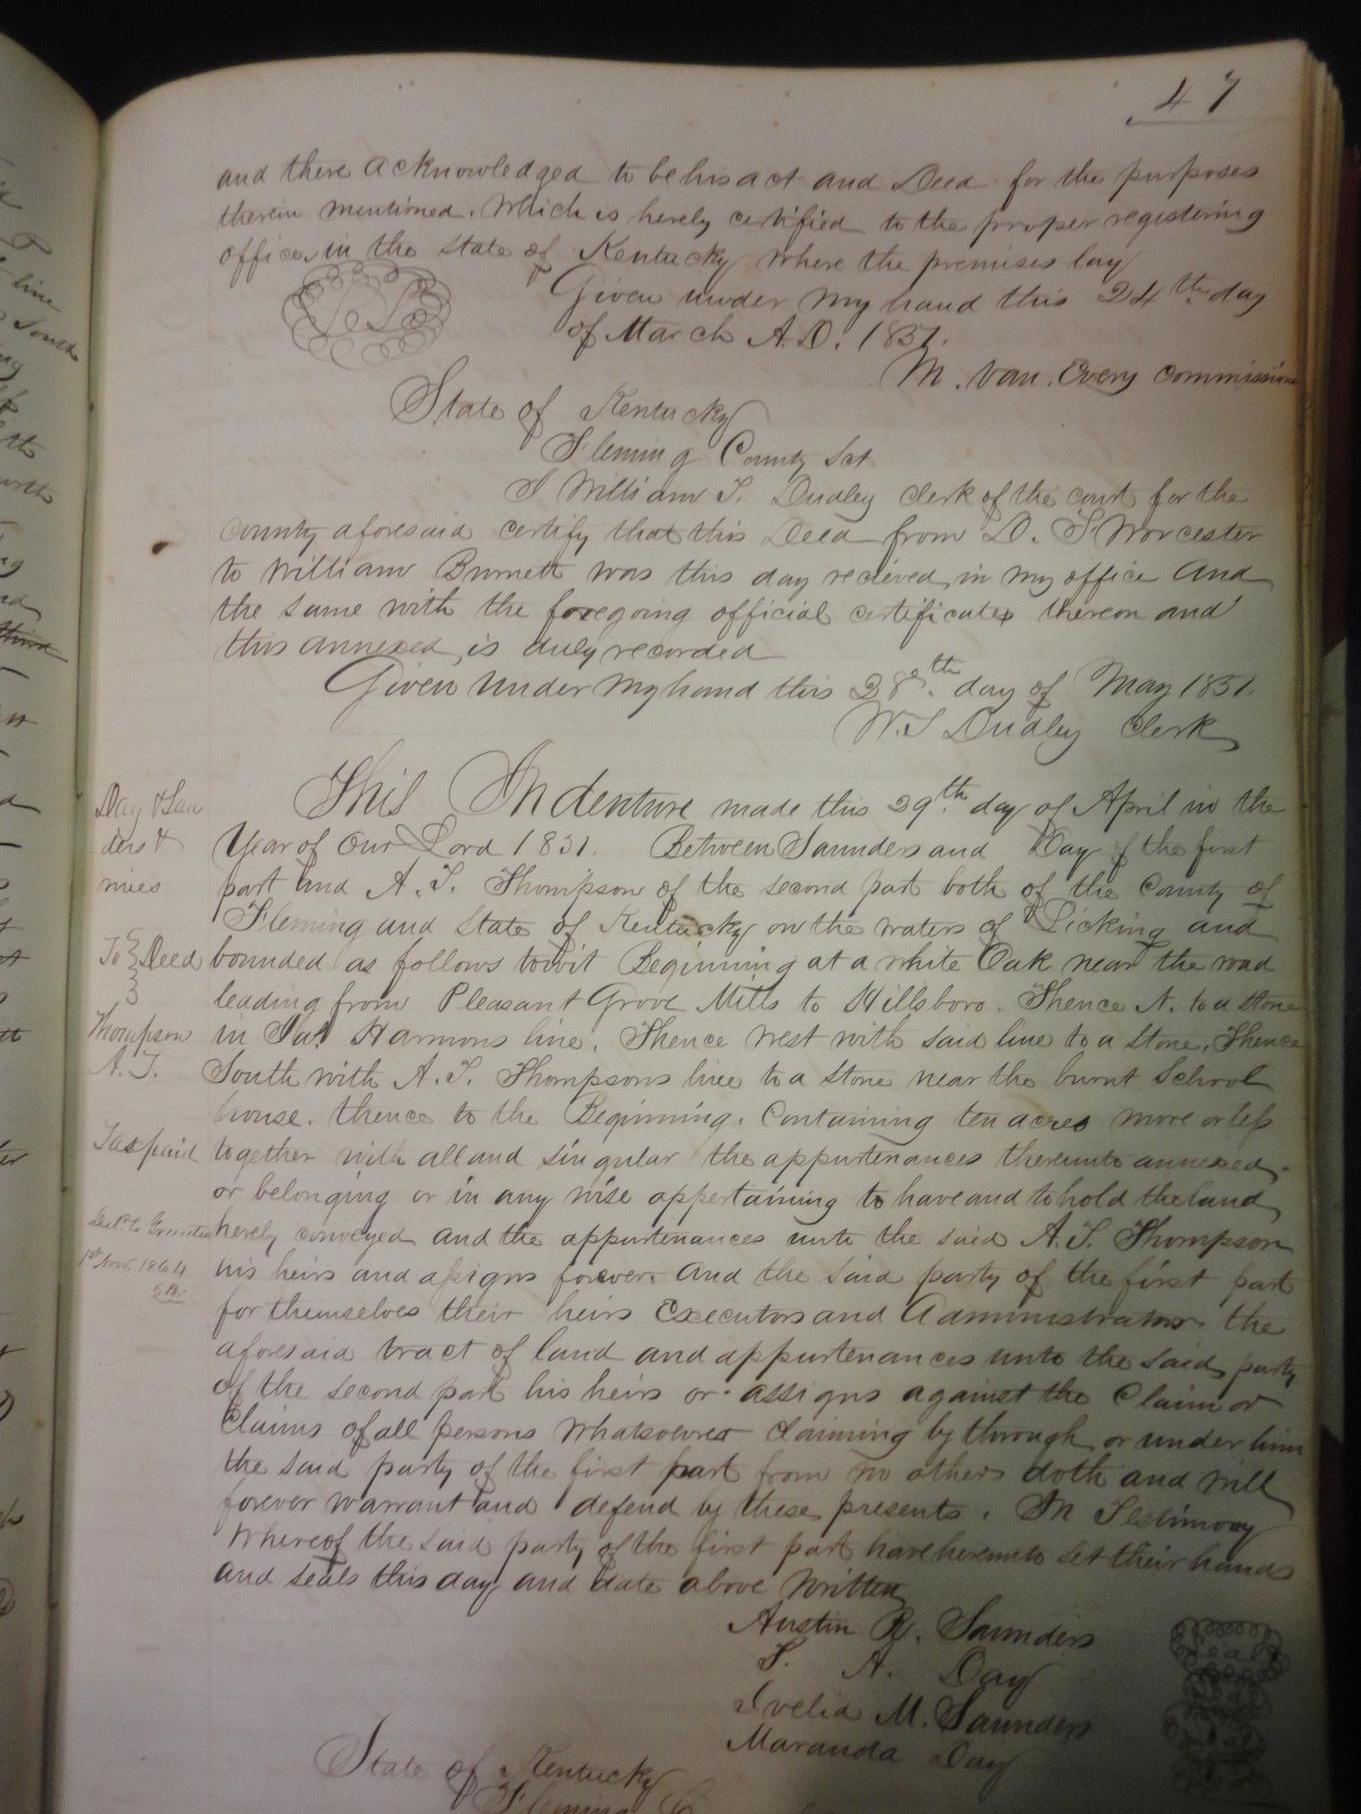 47
and there acknowledged to be his act and Deed for the purposes
therein mentioned. Which is hereby certified to the proper registering
office in the state of Kentucky where the premises lay
Given under my hand this 24th day
of March A.D. 1851.
M. Van. Every commissioner
State of Kentucky
Fleming County Sct.
I William T. Dudley clerk of the court for the
County aforesaid certify that this Deed from D. S Worcester
to William Burnett was this day recieved in my office And
the same with the foregoing official certificates thereon and
this annexed, is duly recorded
Given under my hand this 28th day of May 1851.
W. T Dudley Clerk
This Indenture made this 29th day of April in the
Year of Our Lord 1851. Between Saunders and Day of the first
part and A. T. Thompson of the second part both of the County of
Fleming and State of Kentucky on the waters of Licking and
bounded as follows towit Beginning at a white Oak near the road
leading from Pleasant Grove Mills to Hillsboro. Thence N. to a stone
in Harmons line. Thence west with said line to a stone. Thence
South with A. T. Thompsons line to a stone near the burnt School
house. thence to the Beginning. Containing ten acres more or less
together with all and singular the appurtenances thereunto annexed
or belonging or in any wise appertaining to have and to hold the land
hereby conveyed and the appurtenances unto the said A. T. Thompson
his heirs and assigns forever. And the said party of the first part
for themselves their heirs Executors and Administrators the
aforesaid tract of land and appurtenances unto the said party
of the second part his heirs or assigns against the Claim or
Claims of all persons whatsoever claiming by through or under him
the said party of the first part from no others doth and will
forever warrant and defend by these presents. In Testimony
Whereof the said party of the first part have hereunto set their hands
and seals this day and date above Written
Austin R. Saunders Seal
T. A. Day
M. Saunders
Maranda Day
State of Kentucky
Fleming
Day & Saun
ders &
wives
To Deed
Thompson
A. T.
Tax paid
Deld to Grantee
1st Nov. 1864